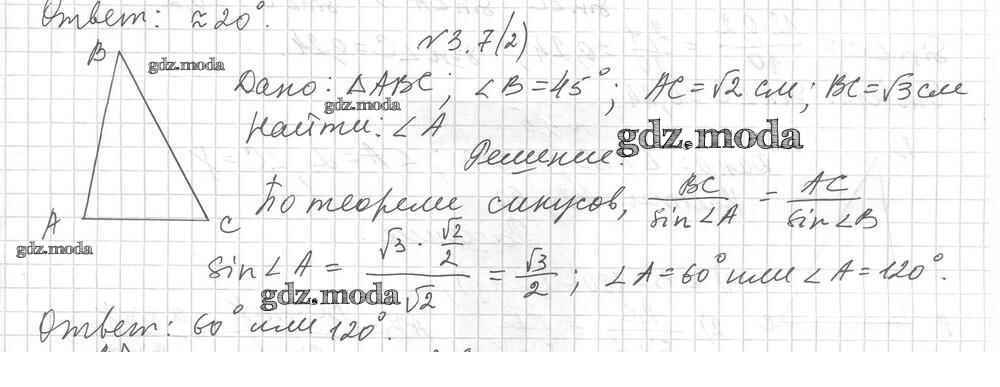 Ответ: ≈ 20°.
№3.7(2)
B
gdz.moda
Дано: △ABC; ∠B = 45°; AC = √2 см; BC = √3 см
gdz.moda
Найти: ∠A
gdz.moda
Решение:
По теореме синусов, BC/sin∠A = AC/sin∠B
A
C
gdz.moda
sin∠A = (√3 · √2/2)/√2 = √3/2; ∠A = 60° или ∠A = 120°.
gdz.moda
Ответ: 60° или 120°.